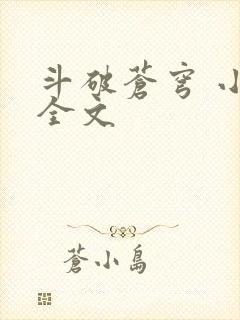 斗破蒼穹 小
全文
蒼小島